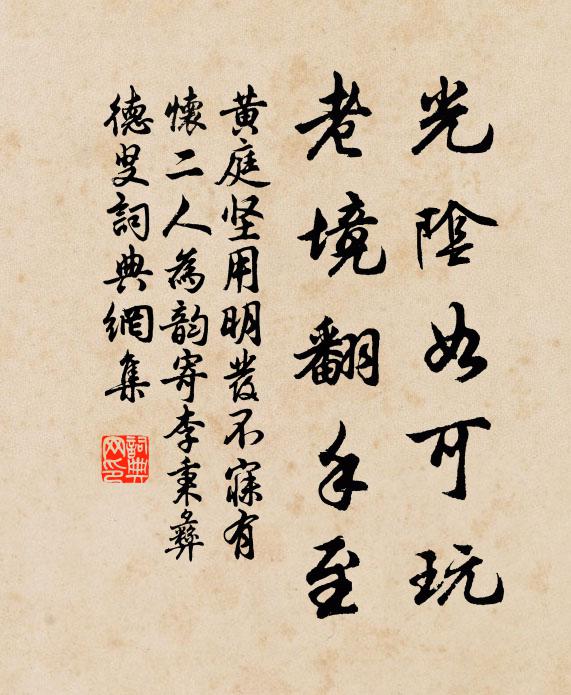 光陰如可玩
老境翻手至
黄庭坚用明發不寐有
懷二人為韵寄李秉彝
德叟詞典網集
詞典
网印